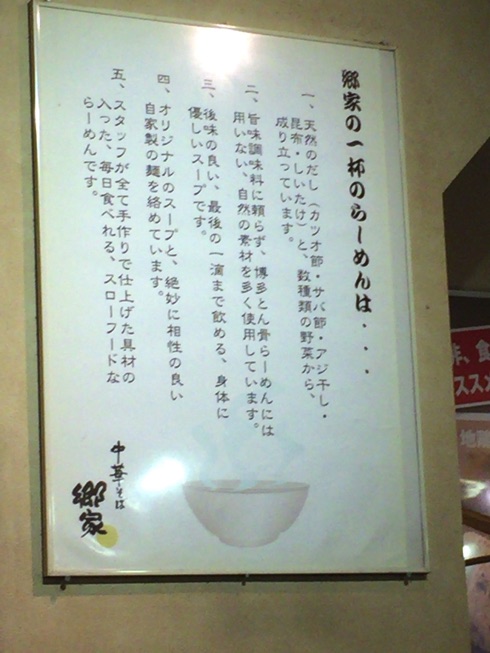 郷家の一杯のらーめんは・・・
一、天然のだし（カツオ節・サバ節・アジ干し・
昆布・しいたけ）と、数種類の野菜から、
成り立っています。
二、旨味調味料に頼らず、博多とん骨らーめんには
用いない、自然の素材を多く使用しています。
三、後味の良い、最後の一滴まで飲める、身体に
優しいスープです。
四、オリジナルのスープと、絶妙に相性の良い
自家製の麺を絡めています。
五、スタッフが全て手作りで仕上げた具材の
入った、毎日食べれる、スローフードな
らーめんです。
中華そば
郷家